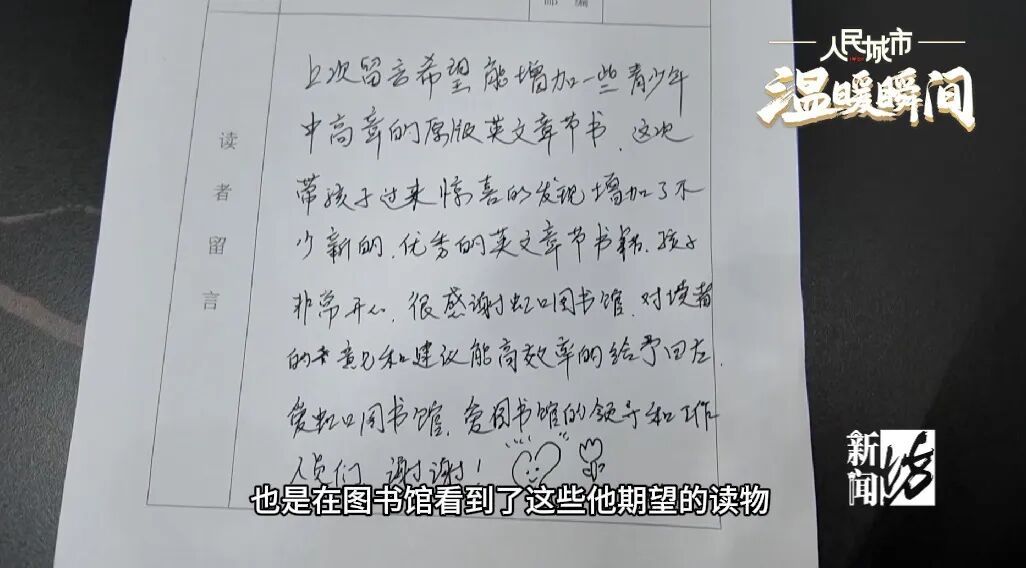 邮编
人民城市
温暖瞬间
读者留言
上次留言希望能增加一些青少年
中高章的原版英文章节书，这次
带孩子过来惊喜的发现增加了不
少新的，优秀的英文章节书籍，孩子
非常开心，很感谢虹口图书馆，对读者
的意见和建议能高效率的给予回应，
爱虹口图书馆，爱图书馆的领导和工作
人员们，谢谢！
新闻坊
也是在图书馆看到了这些他期望的读物